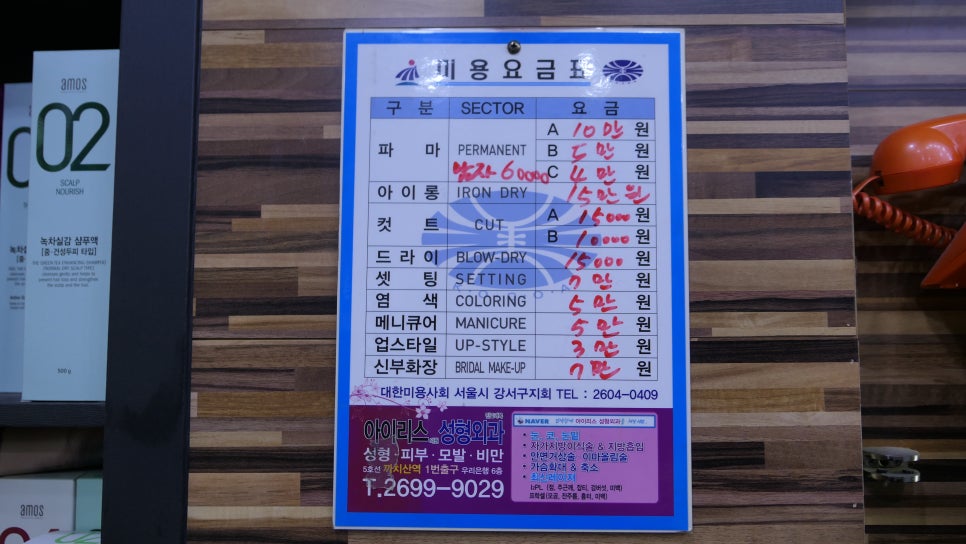 amos
02
SCALP
NOURISH
녹차실감 샴푸액
[중·건성두피 타입]
500 g
amos
미용요금표
구 분 SECTOR 요 금
파 마 PERMANENT A 10만 원
B 5만 원
남자 60000 C 4만 원
아이롱 IRON DRY 15만원
컷 트 CUT A 15000 원
B 10000 원
드라이 BLOW-DRY 15000 원
셋 팅 SETTING 7만 원
염 색 COLORING 5만 원
메니큐어 MANICURE 5만 원
업스타일 UP-STYLE 3만 원
신부화장 BRIDAL MAKE-UP 7만 원
대한미용사회 서울시 강서구지회 TEL : 2604-0409
아이리스 성형외과
성형·피부·모발·비만
5호선 까치산역 1번출구 우리은행 6층
T.2699-9029
NAVER 아이리스 성형외과
• 눈, 코, 동일
• 자가지방이식술 & 지방흡입
• 안면거상술·이마올림술
• 가슴확대 & 축소